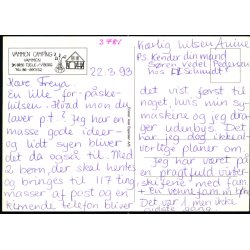 3781
VAMMEN CAMPING
VAMMEN
22.3.93
Kære Freya
En lille før-påske-
hilsen. Hvad mon du
laver p.t.? Jeg har en
masse gode ideer-
og lidt syen bliver
det da også til. Med
2 børn, der skal hentes
og bringes til 117 ting,
masser af post og en
kimende telefon bliver
Kærlig hilsen Anine
Ps Kender din mand
Søren Vedel Pedersen
hos Schmidt?
det vist først til
noget, hvis min sy-
maskine og jeg drager
udenbys. Det
har jeg dog ikke
vorlige planer om,
jeg har været på
en pragtfuld vinter-
skiferie med fam.
+ en vennefam. m.
Det var 1 men ikke
sidste gang